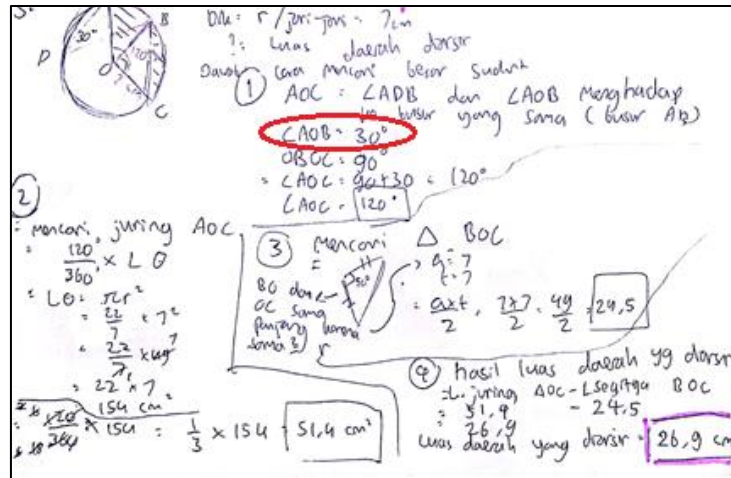 30°
B
D
O
C
Dik: r / jari-jari = 7 cm
?: Luas daerah diarsir
cara mencari besar sudut
① AOC = ∠ADB dan ∠AOB Menghadap
busur yang sama (busur AB)
∠AOB = 30°
OBOC = 90°
= ∠AOC = 90+30 = 120°
∠AOC = 120°
②
= mencari juring AOC
= 120°/360° × L O
= LO = πr²
= 22/7 × 7²
= 22/7 × 49 7
= 22 × 7
= 154 cm²
= 120/360 × 154 = 1/3 × 154 = 51,4 cm²
③ mencari △ BOC
=
a = 7
t = 7
BO dan
OC sama
panjang karena
sama² r
= a×t/2 = 7×7/2 = 49/2 = 24,5
④ hasil luas daerah yg diarsir
= L. juring AOC - L segitiga BOC
= 51,9 - 24,5
= 26,9
Luas daerah yang diarsir = 26,9 cm